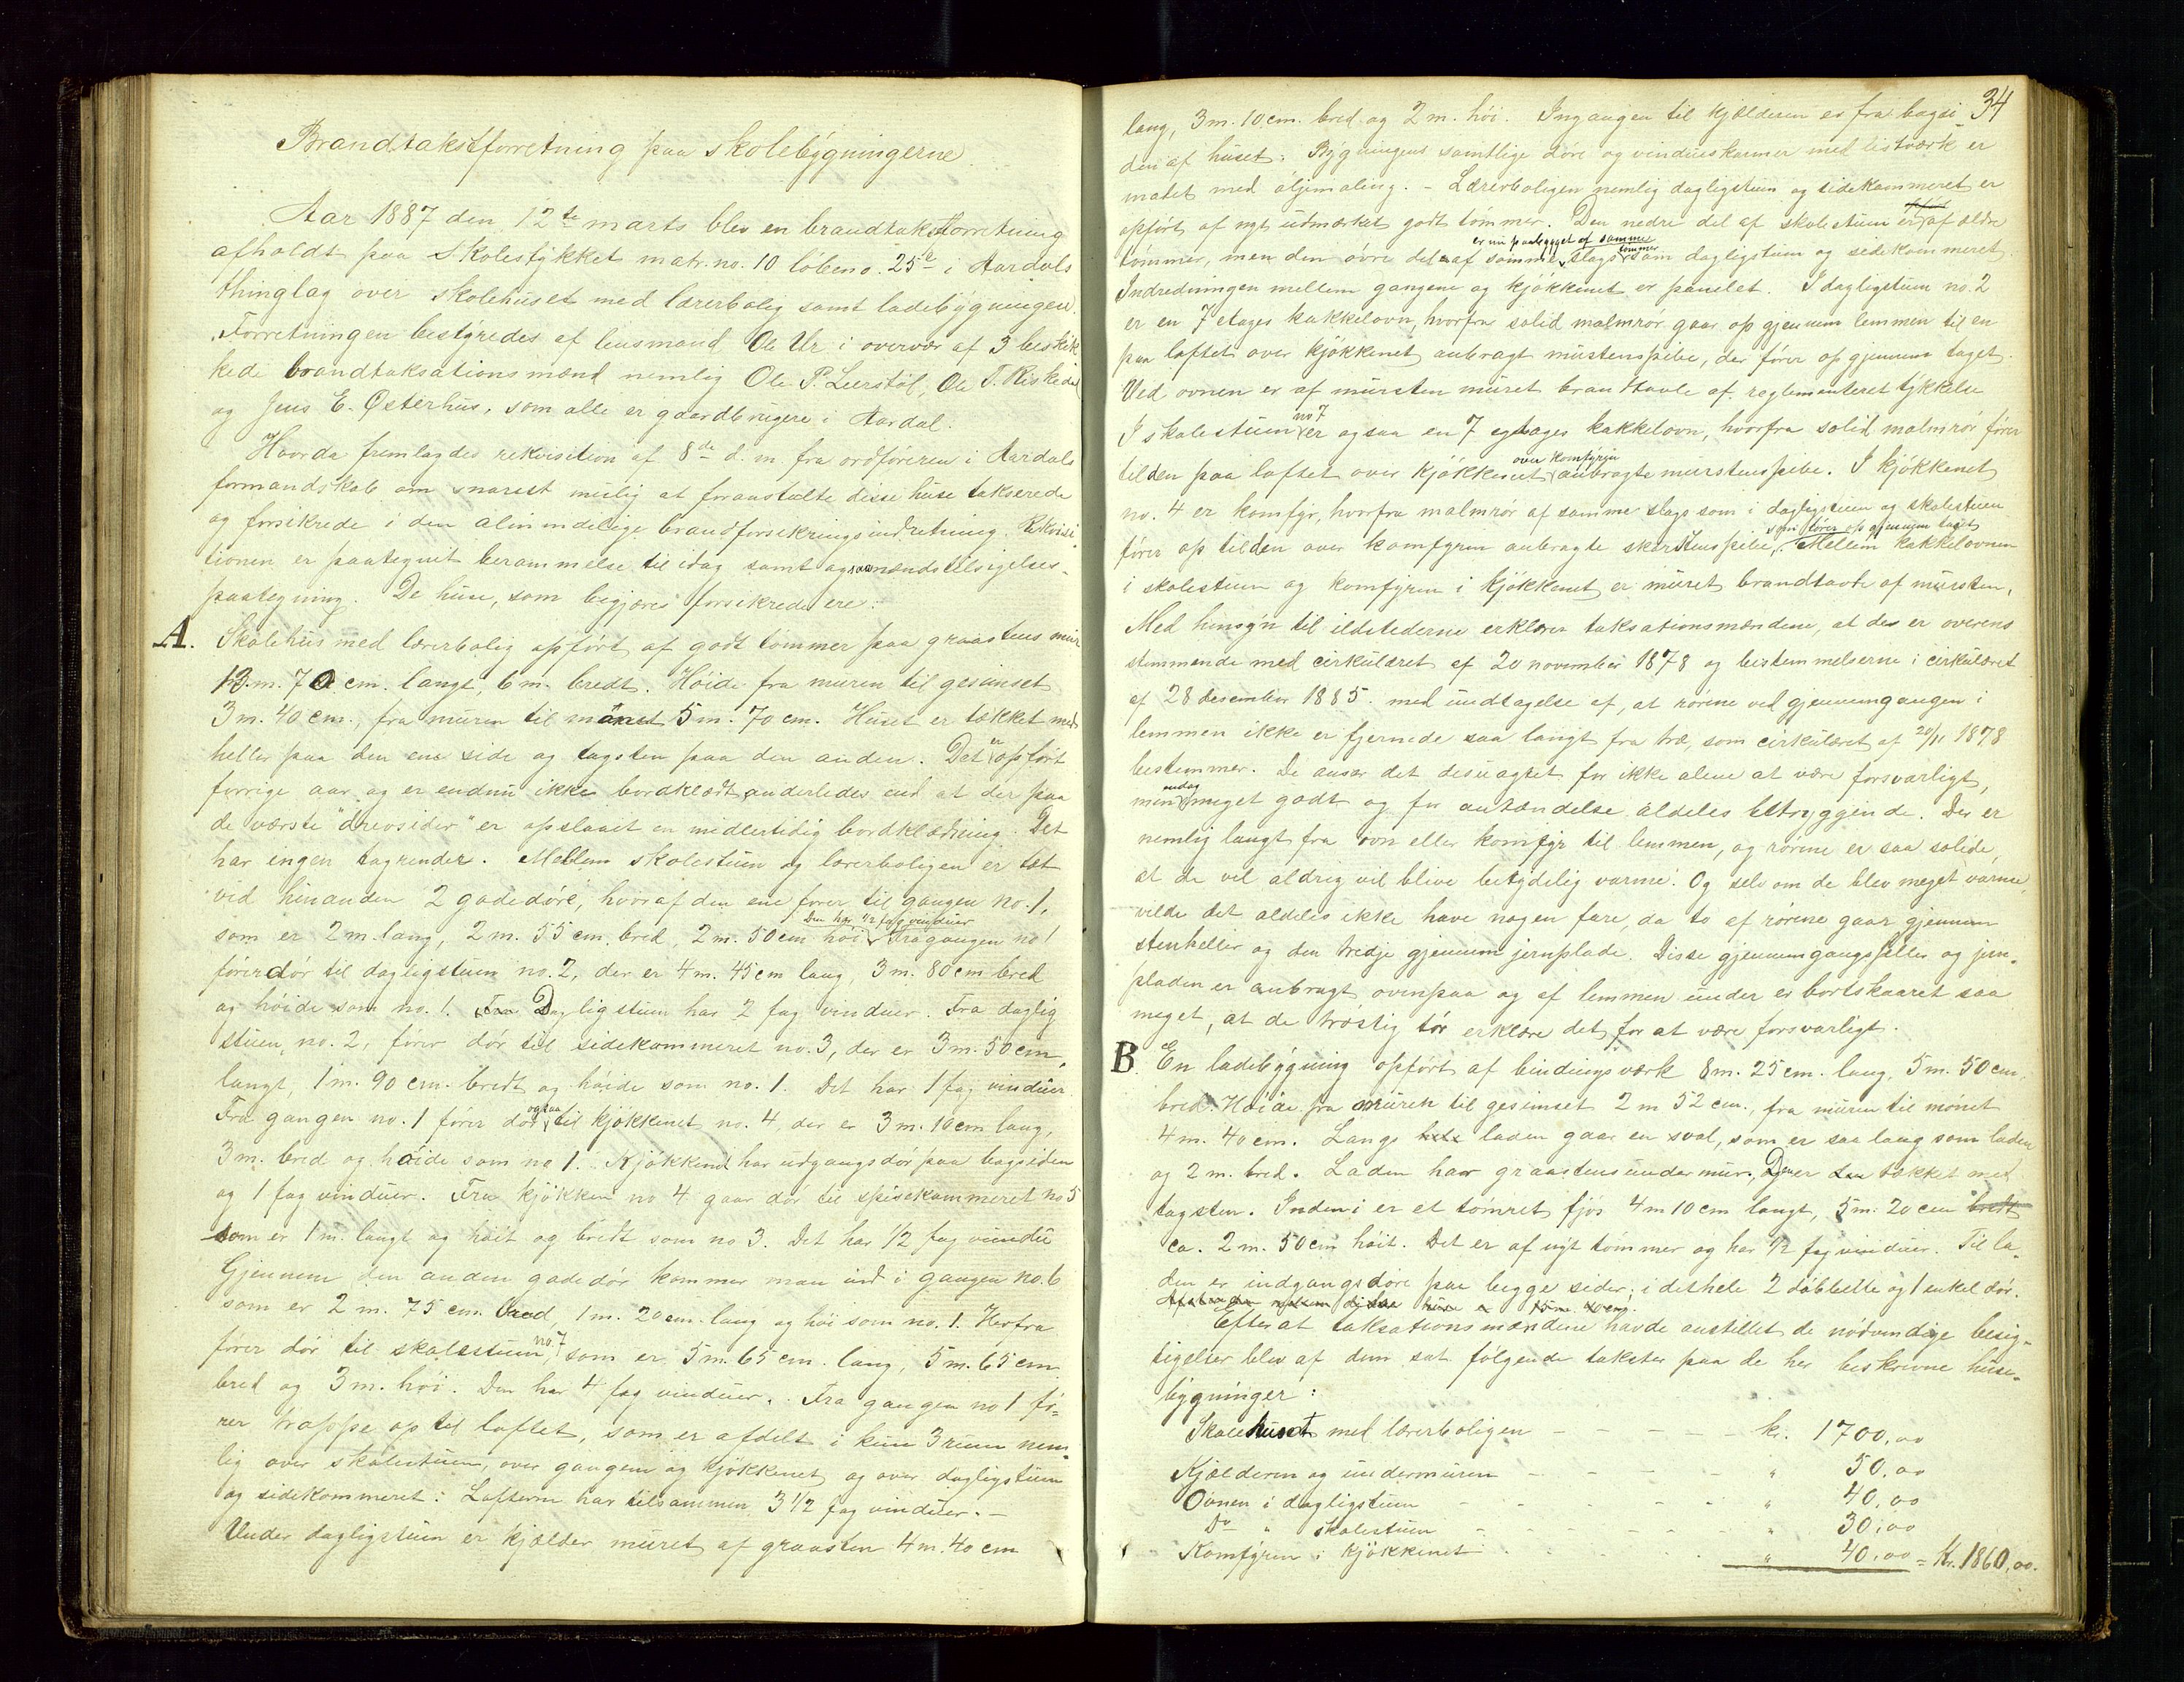 Brandtakstforretning paa skolebygningerne.
Aar 1887 den 12te marts blev en brandtakstforretning
afholdt paa Skolestykket matr. no. 10 løbeno. 25e i Aardals
thinglag over skolehuset med lærerbolig samt ladebygningen.
Forretningen bestyredes af lensmand Ole Ur i overvær af 3 beskik-
kede brandtaksationsmænd nemlig Ole P. Leerstøl, Ole T. Riskedal
og Jens E. Østerhus, som alle er gaardbrugere i Aardal.
Hvorda fremlagdes rekvisition af 8de d. m. fra ordføreren i Aardals
formandskab om snarest mulig at foranstalte disse huse takserede
og forsikrede i den almindelige brandforsikringsindretning. Rekvisi-
tionen er paategnet berammelse til idag samt ogsaa mændstilsigelses-
paategning. De huse, som begjæres forsikrede ere:
A. Skolehus med lærerbolig opført af godt tømmer paa graastens mur
13 m. 70 cm. langt, 6 m. bredt. Høide fra muren til gesimset
3 m. 40 cm., fra muren til mønet 5 m. 70 cm. Huset er tækket med
heller paa den ene side og tagsten paa den anden. Det er opført
forrige aar og er endnu ikke bordklædt anderledes end at der paa
de værste "drevsider" er opslaaet en midlertidig bordklædning. Det
har ingen tagrender. Mellem skolestuen og lærerboligen er tæt
ved hinanden 2 gadedøre, hvoraf den ene fører til gangen no. 1,
Den har 1/2 fag vinduer
som er 2 m. lang, 2 m. 55 cm. bred, 2 m. 50 cm høi. Fra gangen no 1
fører dør til dagligstuen no. 2, der er 4 m. 45 cm lang, 3 m. 80 cm bred
og høide som no. 1. Fra Dagligstuen har 2 fag vinduer. Fra daglig
stuen no. 2, fører dør til sidekammeret no. 3, der er 3 m. 50 cm.
langt, 1 m. 90 cm. bredt og høide som no. 1. Det har 1 fag vinduer.
Fra gangen no. 1 fører dør ogsaa til kjøkkenet no. 4, der er 3 m. 10 cm lang,
3 m. bred og høide som no 1. Kjøkkenet har udgangsdør paa bagsiden
og 1 fag vinduer. Fra kjøkken no 4 gaar dør til spisekammeret no 5
som er 1 m. langt og høit og bredt som no 3. Det har 1/2 fag vindu
Gjennem den anden gadedør kommer man ind i gangen no. 6
som er 2 m. 75 cm. bred, 1 m. 20 cm. lang og høi som no. 1. Herfra
fører dør til skolestuen no 7 som er 5 m. 65 cm. lang, 5 m. 65 cm
bred og 3 m. høi. Den har 4 fag vinduer. Fra gangen no 1 fø-
rer trappe op til loftet, som er afdelt i kun 3 rum nem-
lig over skolestuen, over gangene og kjøkkenet og over dagligstuen
og sidekommeret: Lofterne har tilsammen 3 1/2 fag vinduer. —
Under dagligstuen er kjælder muret af graasten 4 m. 40 cm
34
lang, 3 m. 10 cm. bred og 2 m. høi. Ingangen til kjælderen er fra bagsi-
den af huset. Bygningens samtlige døre og vindueskarmer med listværk er
malet med oljemaling. - Lærerboligen nemlig dagligstuen og sidekammeret er
opført af nyt udmærket godt tømmer. Den nedre del af skolestuen er af ældre
er nu paabygget af samme
tømmer, men den øvre del af samme slags tømmer som dagligstuen og sidekammeret.
Indredningen mellem gangene og kjøkkenet er panelet. I dagligstuen no. 2
er en 7 etages kakkelovn, hvorfra solid malmrør gaar op gjennem lemmen til en
paa loftet over kjøkkenet anbragt murstenspibe, der fører op gjennem taget.
Ved ovnen er af mursten muret brandtavle af reglementeret tykkelse
I skolestuen no 7 er ogsaa en 7 etages kakkelovn, hvorfra solid malmrør fører
til den paa loftet over kjøkkenet over komfyren anbragte murstenspibe. I kjøkkenet
no. 4 er komfyr, hvorfra malmrør af samme slags som i dagligstuen og skolestuen
som fører op gjennem taget
fører op til den over komfyren anbragte skorstenspibe. Mellem kakkelovnen
i skolestuen og komfyren i kjøkkenet er muret brandtavle af mursten.
Med hensyn til ildstederne erklærer taksationsmændene, at des er overens
stemmende med cirkulæret af 20 november 1878 og bestemmelserne i cirkulæret
af 28 desember 1885. med undtagelse af, at rørene ved gjennemgangen i
lemmen ikke er fjernede saa langt fra træ, som cirkulæret af 20/11 1878
bestemmer. De anser det desuagtet for ikke alene at være forsvarligt,
men endog meget godt og for antændelse aldeles betryggende. Der er
nemlig langt fra ovn eller komfyr til lemmen, og rørene er saa solide,
at de vel aldrig vil blive betydelig varme. Og selv om de blev meget varme,
vilde det aldeles ikke have nogen fare, da to af rørene gaar gjennem
stenheller og den tredje gjennem jernplade. Disse gjennemgangsheller og jern-
pladen er anbragt ovenpaa og af lemmen under er bortskaaret saa
meget, at de trøstig tør erklære det for at være forsvarligt.
B. En ladebygning opført af bindingsværk 8 m. 25 cm. lang, 5 m. 50 cm.
bred. Høide fra muren til gesimset 2 m 52 cm., fra muren til mønet
4 m. 40 cm. Langs hele laden gaar en sval, som er saa lang som laden
og 2 m. bred. Laden har graastensundermur. Den er tækket med
tagsten. Inden i er et tømret fjøs 4 m 10 cm langt, 5 m. 20 cm bredt
ca. 2 m. 50 cm høit. Det er af nyt tømmer og har 1/2 fag vinduer. Til la-
den er indgangsdøre paa begge sider; i det hele 2 dobbelte og 1 enkel dør.
Afstanden mellem disse huse er 15 m. 40 cm.
Efter at taksationsmændene havde anstillet de nødvendige besig-
tigelser blev af dem sat følgende takster paa de her beskrevne huse-
bygninger:
Skolehuset med lærerboligen - - - - kr. 1700,00
Kjælderen og undermuren - - - - " 50,00
Ovnen i dagligstuen - - - - - " 40,00
Do " skolestuen - - - - - " 30,00
Komfyren i kjøkkenet . . . . " 40,00 = Kr. 1860,00.